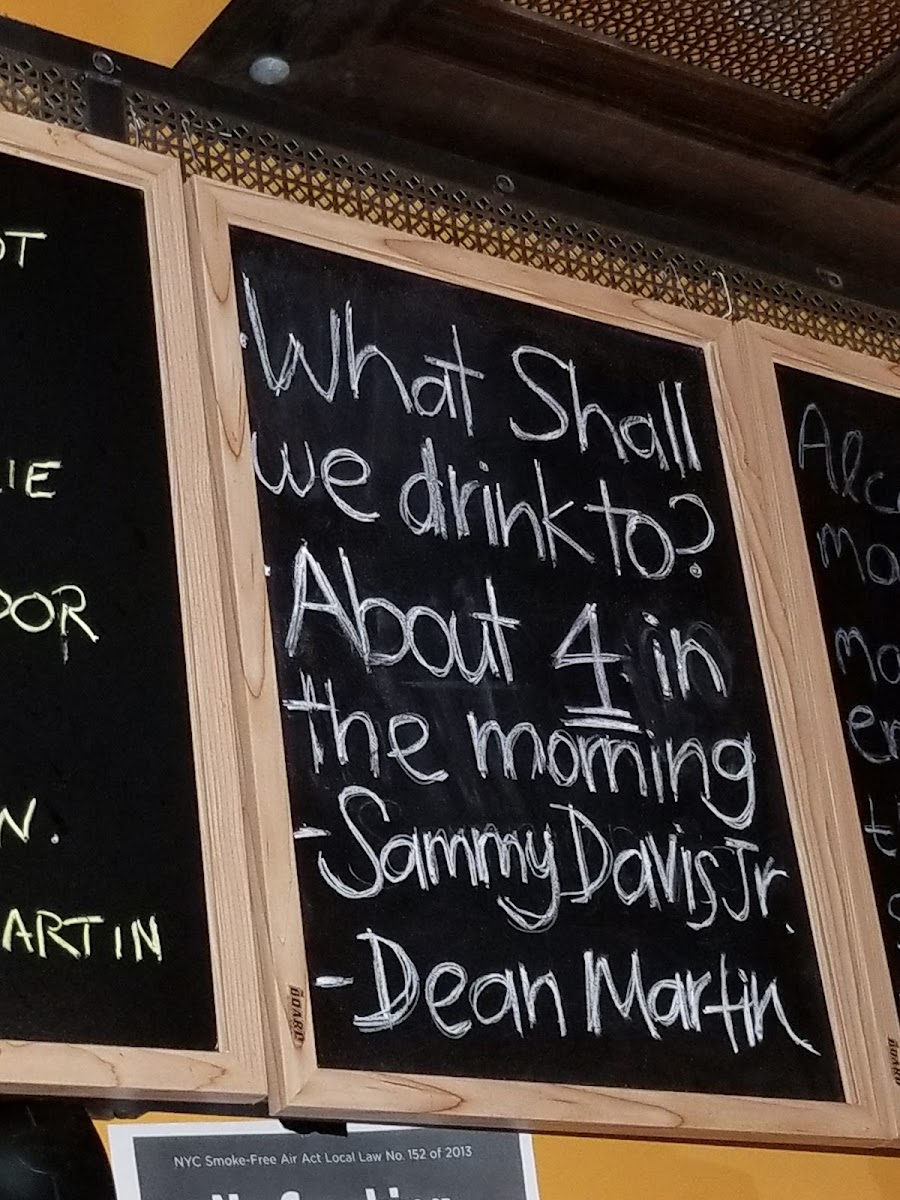 What Shall
we drink to?
About 4 in
the morning
- Sammy Davis Jr.
- Dean Martin
OT
IE
OOR
N.
ARTIN
Alc
mo
ma
en
BOARD
BOARD
NYC Smoke-Free Air Act Local Law No. 152 of 2013